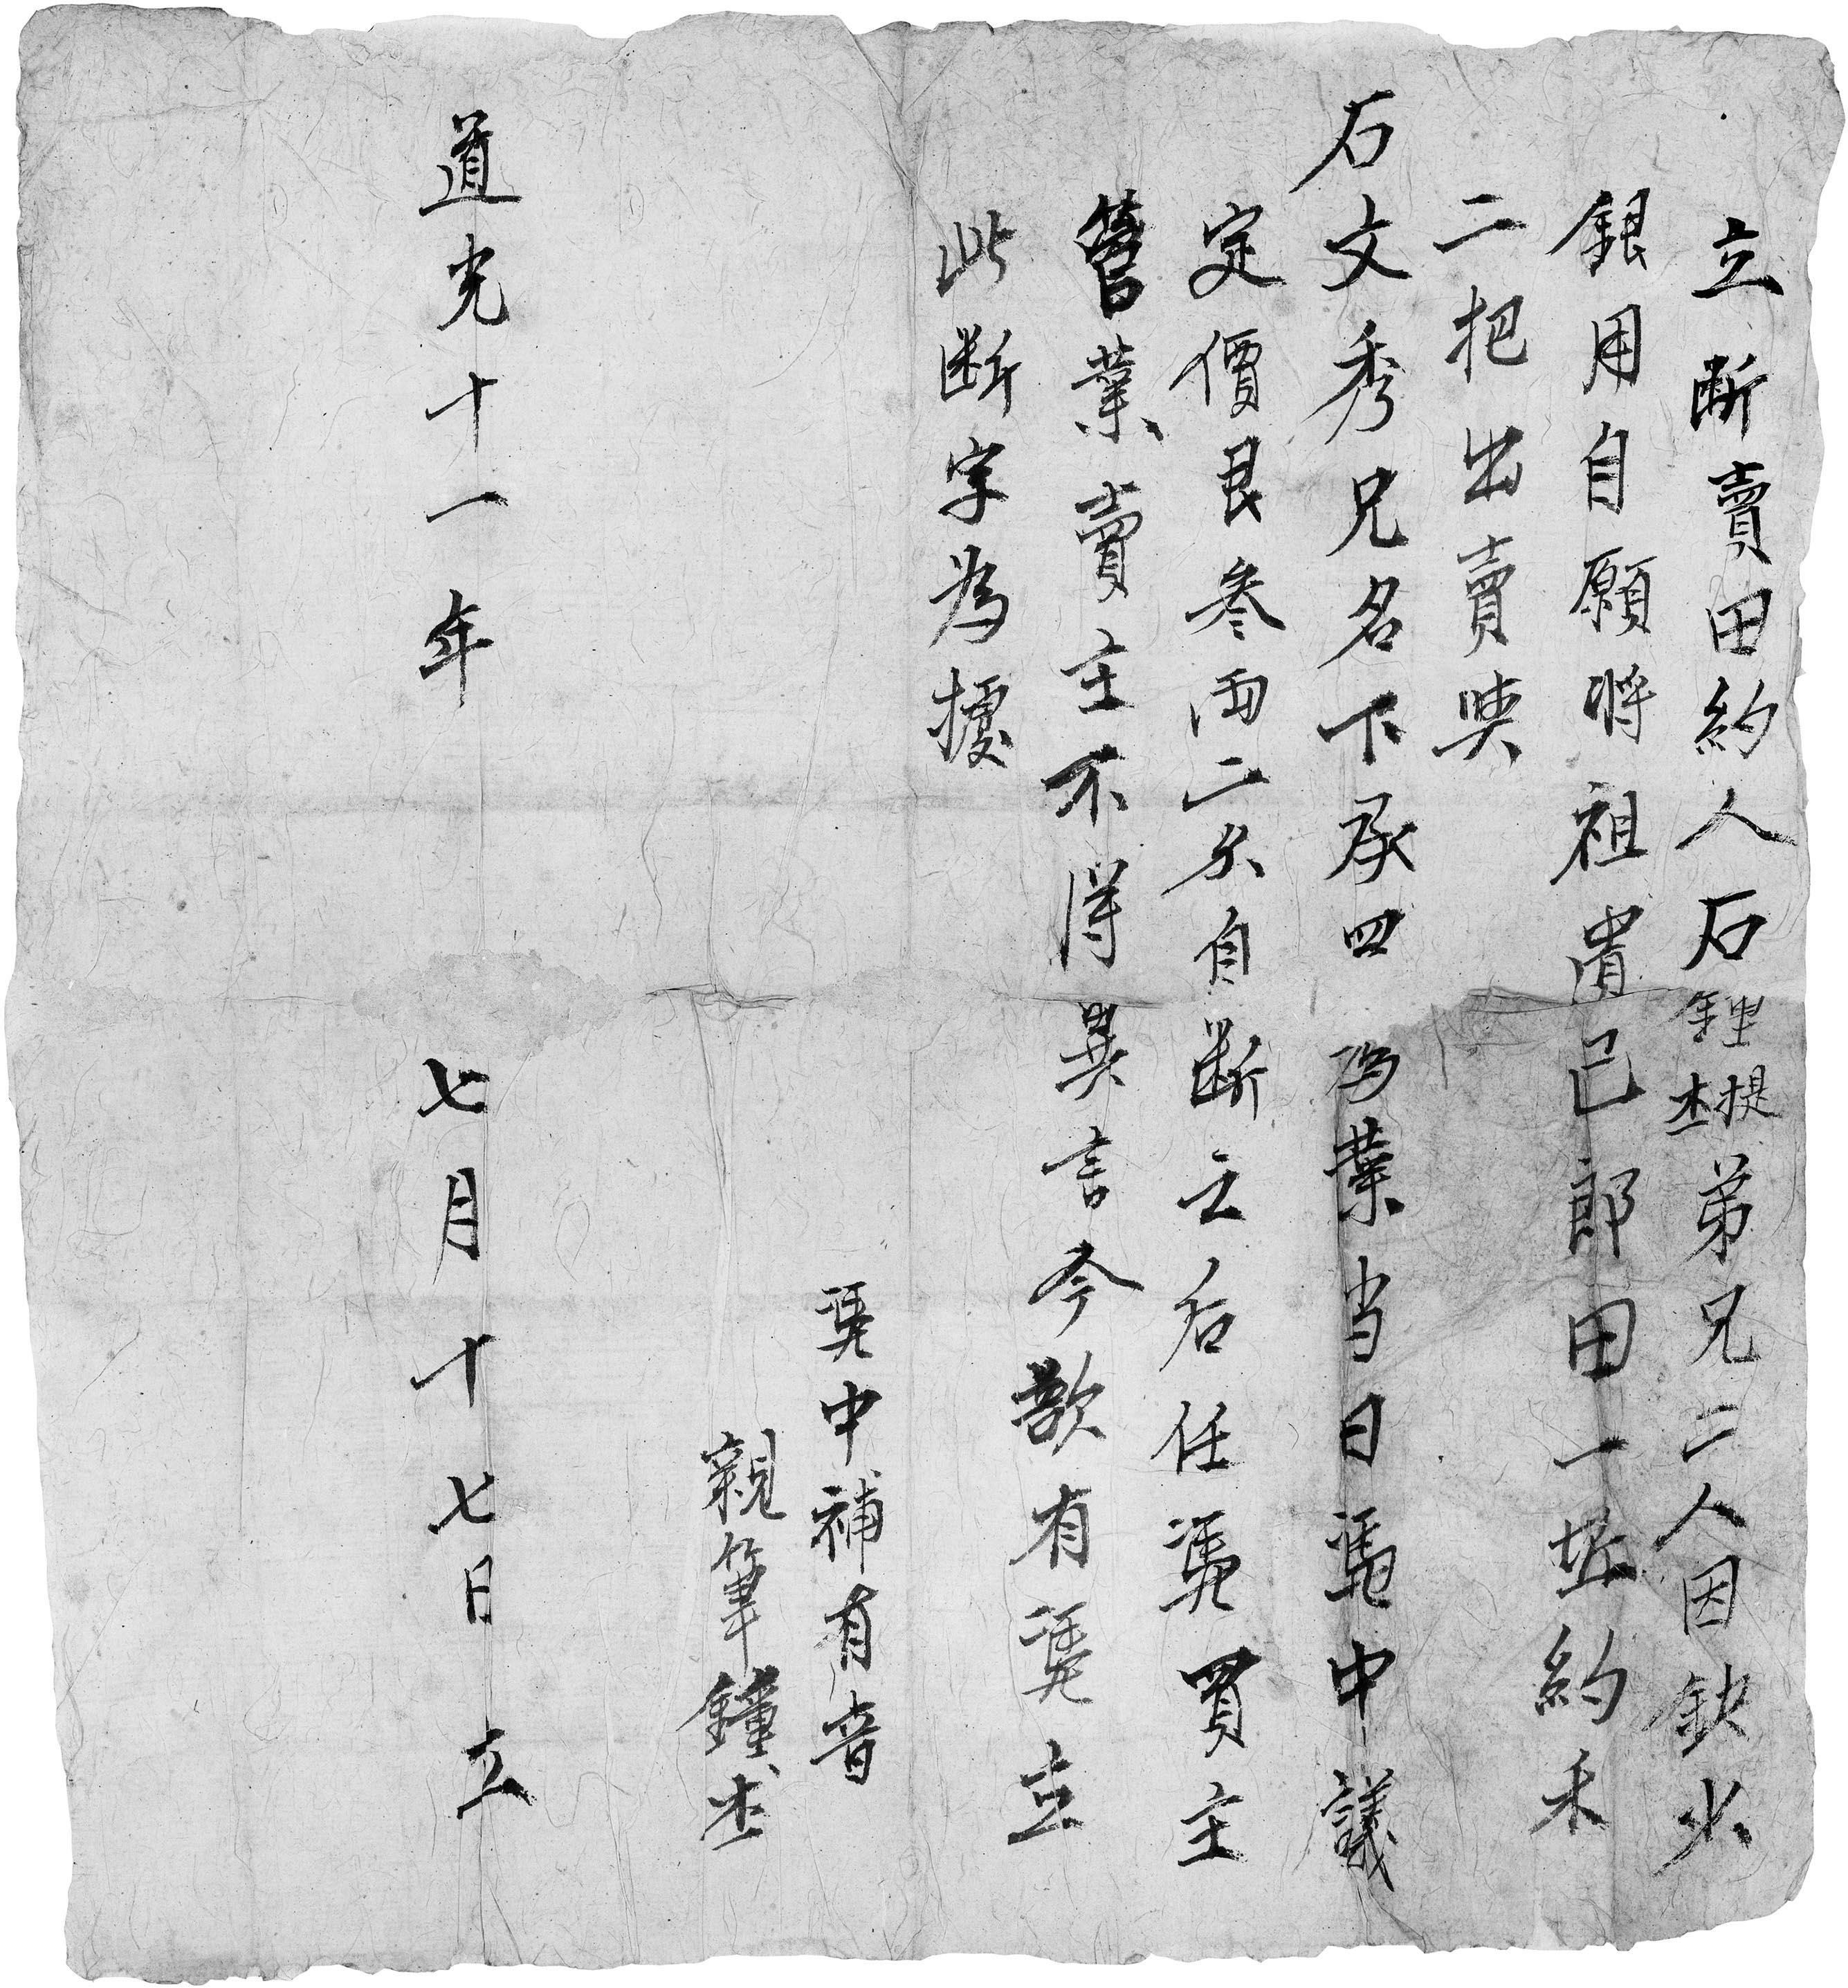 立断賣田約人石鍾杢提弟兄二人因缺少
銀用自願将祖遺己郎田一坵約禾
二把出賣與
石文秀兄名下承四為業当日凭中議
定價艮叁両二分自断之后任凭買主
管業賣主不得異言今歌有凭立
此断字為據
凭中補有音
親筆鐘杢
道光十一年七月十七日立